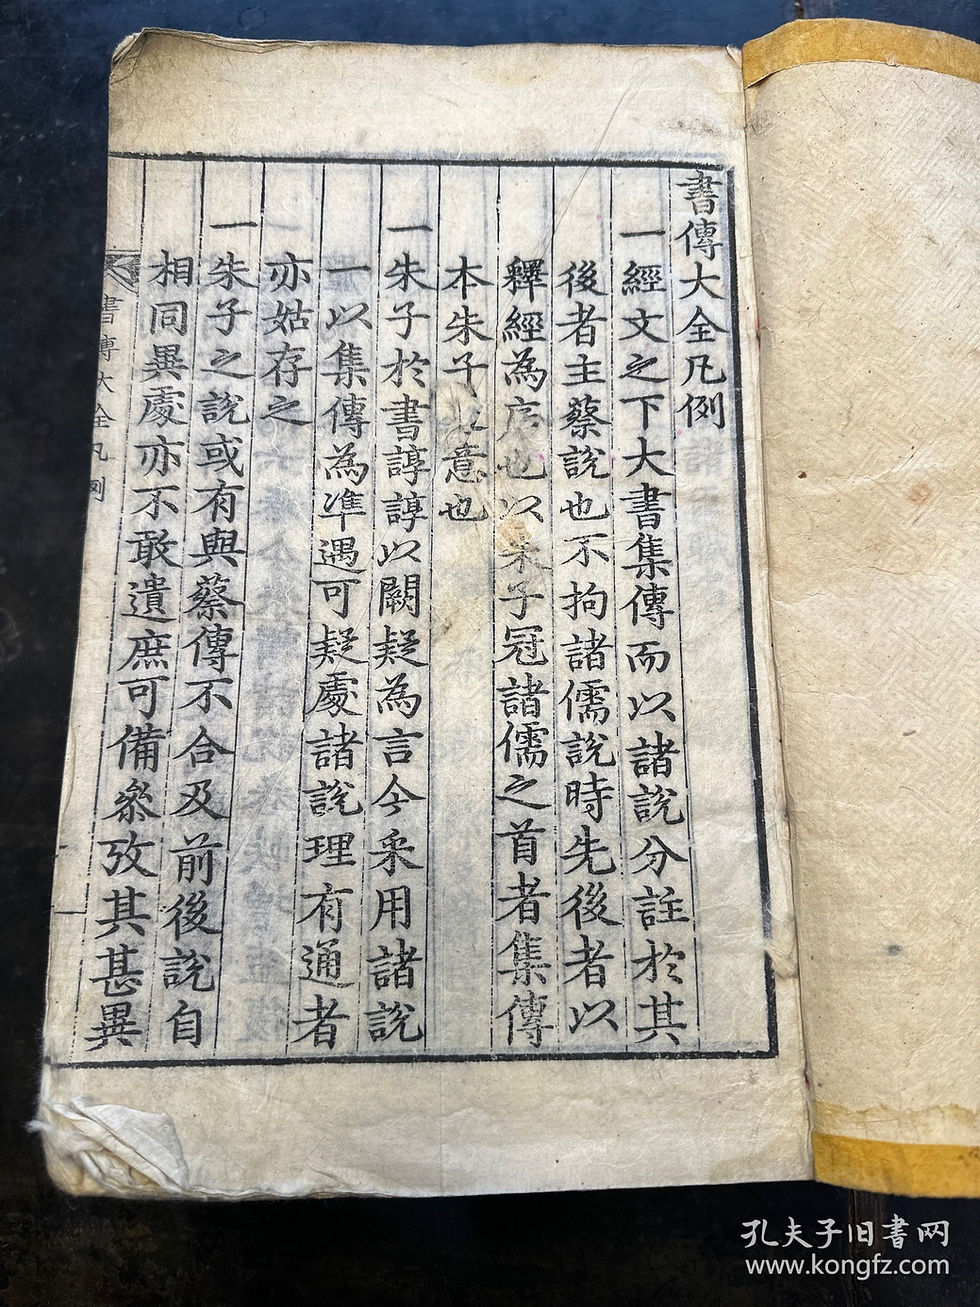 書傳大全凡例
一經文之下大書集傳而以諸說分註於其
後者主蔡說也不拘諸儒說時先後者以
釋經為序也以朱子冠諸儒之首者集傳
本朱子之意也
一朱子於書諄諄以闕疑為言今采用諸說
一以集傳為凖遇可疑處諸說理有通者
亦姑存之
一朱子之說或有與蔡傳不合及前後說自
相同異處亦不敢遺庶可備叅攷其甚異
書傳大全凡例
孔夫子旧書网
www.kongfz.com